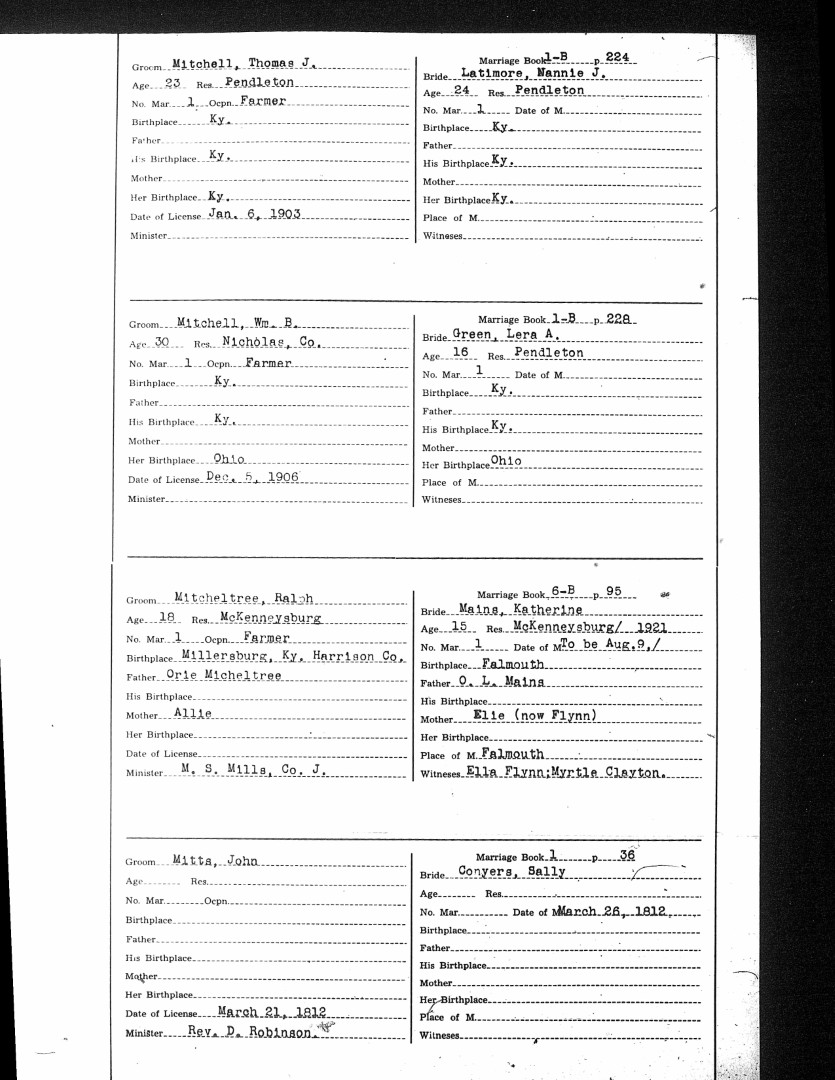 Groom Mitchell, Thomas J.
Age 23 Res. Pendleton
No. Mar. 1 Ocpn. Farmer
Birthplace Ky.
Father
His Birthplace Ky.
Mother
Her Birthplace Ky.
Date of License Jan. 6, 1903
Minister
Marriage Book 1-B p. 224
Bride Latimore, Nannie J.
Age 24 Res. Pendleton
No. Mar. 1 Date of M.
Birthplace Ky.
Father
His Birthplace Ky.
Mother
Her Birthplace Ky.
Place of M.
Witnesses
Groom Mitchell, Wm. B.
Age 30 Res. Nicholas, Co.
No. Mar. 1 Ocpn. Farmer
Birthplace Ky.
Father
His Birthplace Ky.
Mother
Her Birthplace Ohio
Date of License Dec. 5, 1906
Minister
Marriage Book 1-B p. 228
Bride Green, Lera A.
Age 16 Res. Pendleton
No. Mar. 1 Date of M.
Birthplace Ky.
Father
His Birthplace Ky.
Mother
Her Birthplace Ohio
Place of M.
Witnesses
Groom Mitcheltree, Ralph
Age 18 Res. McKenneysburg
No. Mar. 1 Ocpn. Farmer
Birthplace Millersburg, Ky. Harrison Co.
Father Orie Micheltree
His Birthplace
Mother Allie
Her Birthplace
Date of License
Minister M. S. Mills, Co. J.
Marriage Book 6-B p. 95
Bride Mains, Katherine
Age 15 Res. McKenneysburg/ 1921
No. Mar. 1 Date of M To be Aug.9,/
Birthplace Falmouth
Father O. L. Mains
His Birthplace
Mother Elie (now Flynn)
Her Birthplace
Place of M. Falmouth
Witnesses Ella Flynn;Myrtle Clayton.
Groom Mitts, John
Age Res.
No. Mar. Ocpn.
Birthplace
Father
His Birthplace
Mother
Her Birthplace
Date of License March 21, 1812
Minister Rev. D. Robinson.
Marriage Book 1 p. 36
Bride Conyers, Sally
Age Res.
No. Mar. Date of M March 26, 1812,
Birthplace
Father
His Birthplace
Mother
Her Birthplace
Place of M.
Witnesses